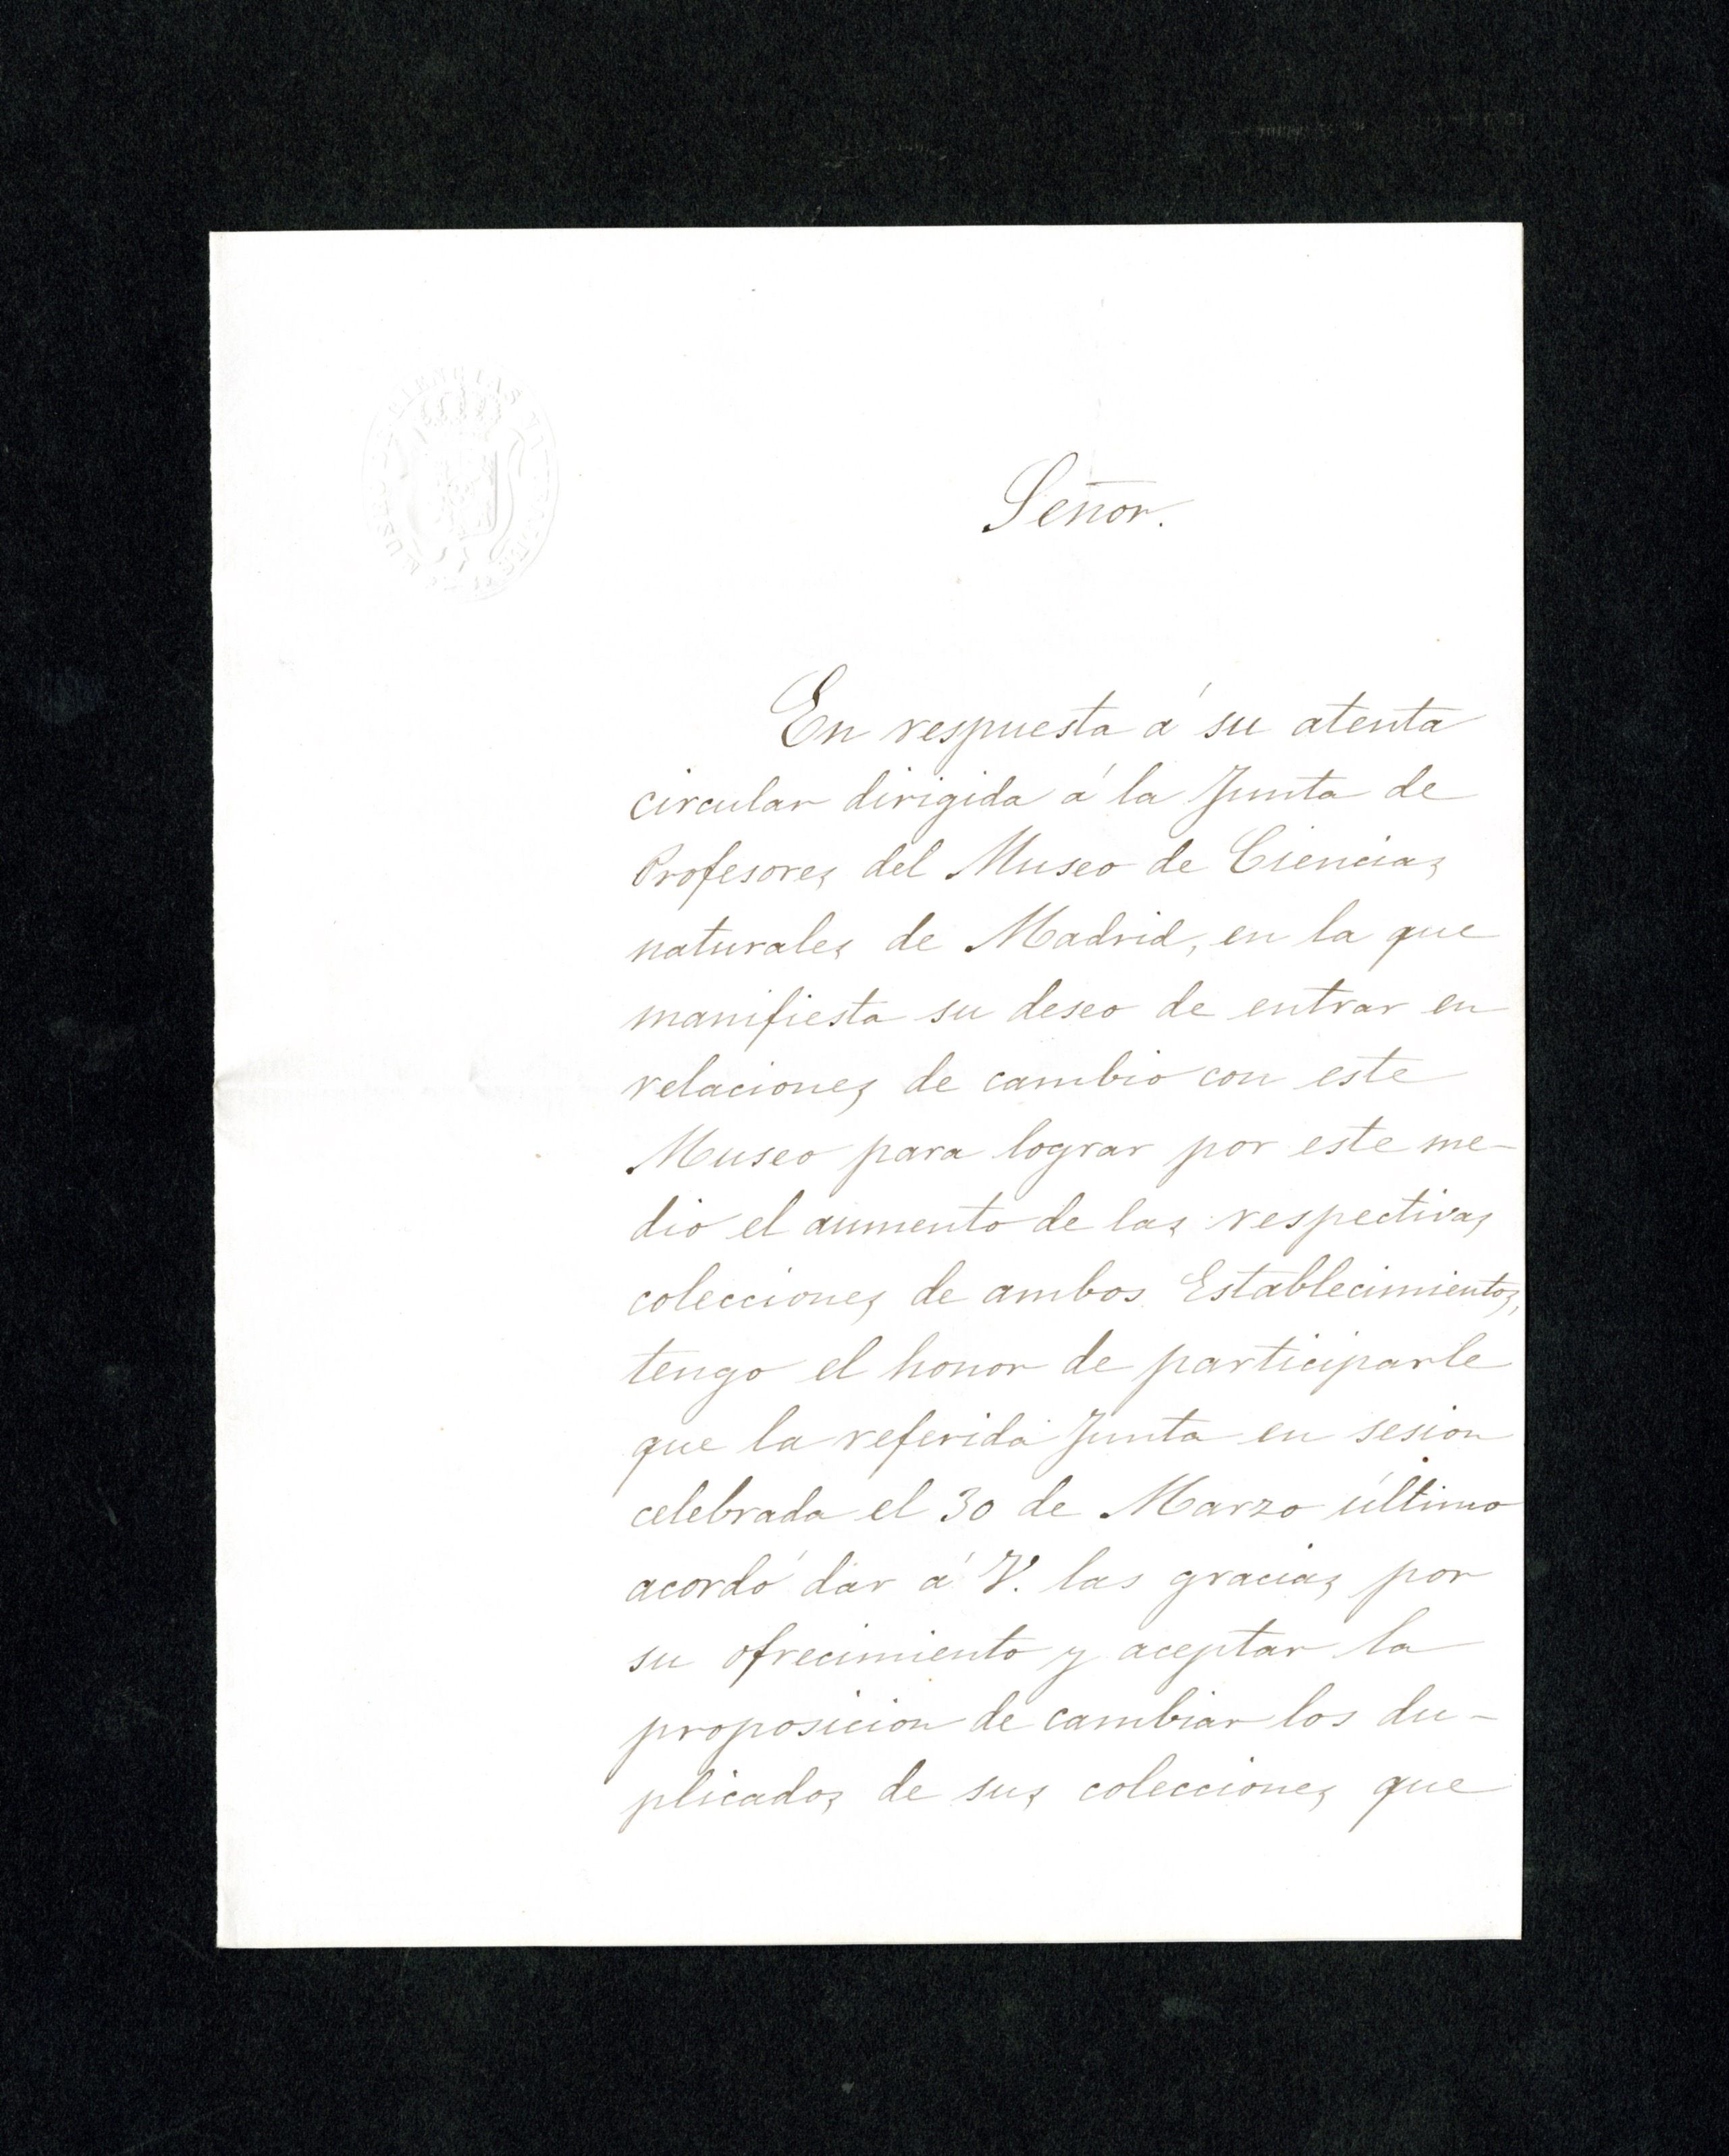 MUSEO DE CIENCIAS NATURALES
Señor.
En respuesta á su atenta
circular dirigida á la Junta de
Profesores del Museo de Ciencias
naturales de Madrid, en la que
manifiesta su deseo de entrar en
relaciones de cambio con este
Museo para lograr por este me-
dio el aumento de las respectivas
colecciones de ambos Establecimientos,
tengo el honor de participarle
que la referida Junta en sesion
celebrada el 30 de Marzo último
acordó dar á V. las gracias por
su ofrecimiento y aceptar la
proposicion de cambiar los du-
plicados de sus colecciones que